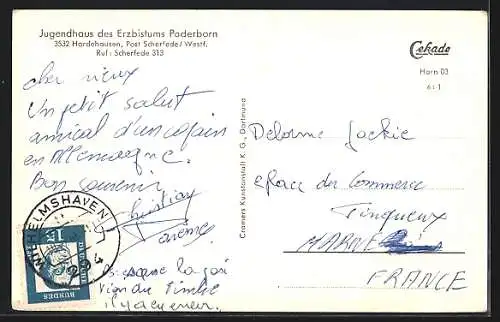 Jugendhaus des Erzbistums Paderborn
3532 Hardehausen, Post Scherfede / Westf.
Ruf: Scherfede 313
Cekade
Harn 03
6 : 1
cher vieux
Un petit salut
amical d'un copain
en Allemagne.
Bon souvenir
Christian
Cramers Kunstanstalt K. G., Dortmund
Delorme Jackie
place du Commerce
Tinqueux
MARNE
FRANCE
WILHELMSHAVEN
DEUTSCHE
BUNDES
du Timbre